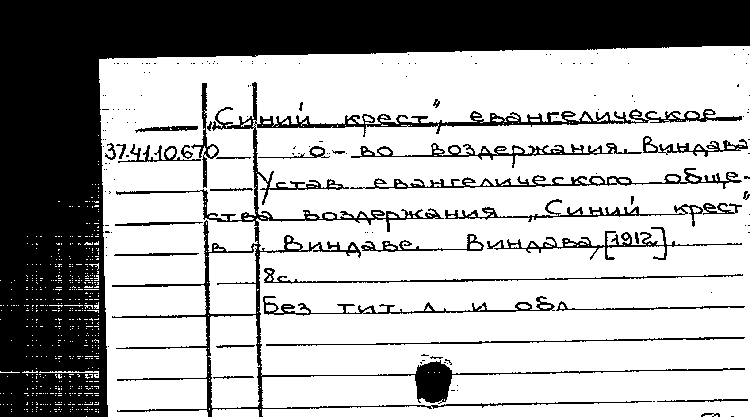 „Синий крест", евангелическое
37.41.10.670 о-во воздержания. Виндава
Устав евангелического обще-
ства воздержания „Синий крест"
в г. Виндаве. Виндава, [1912].
8с.
Без тит. л. и обл.